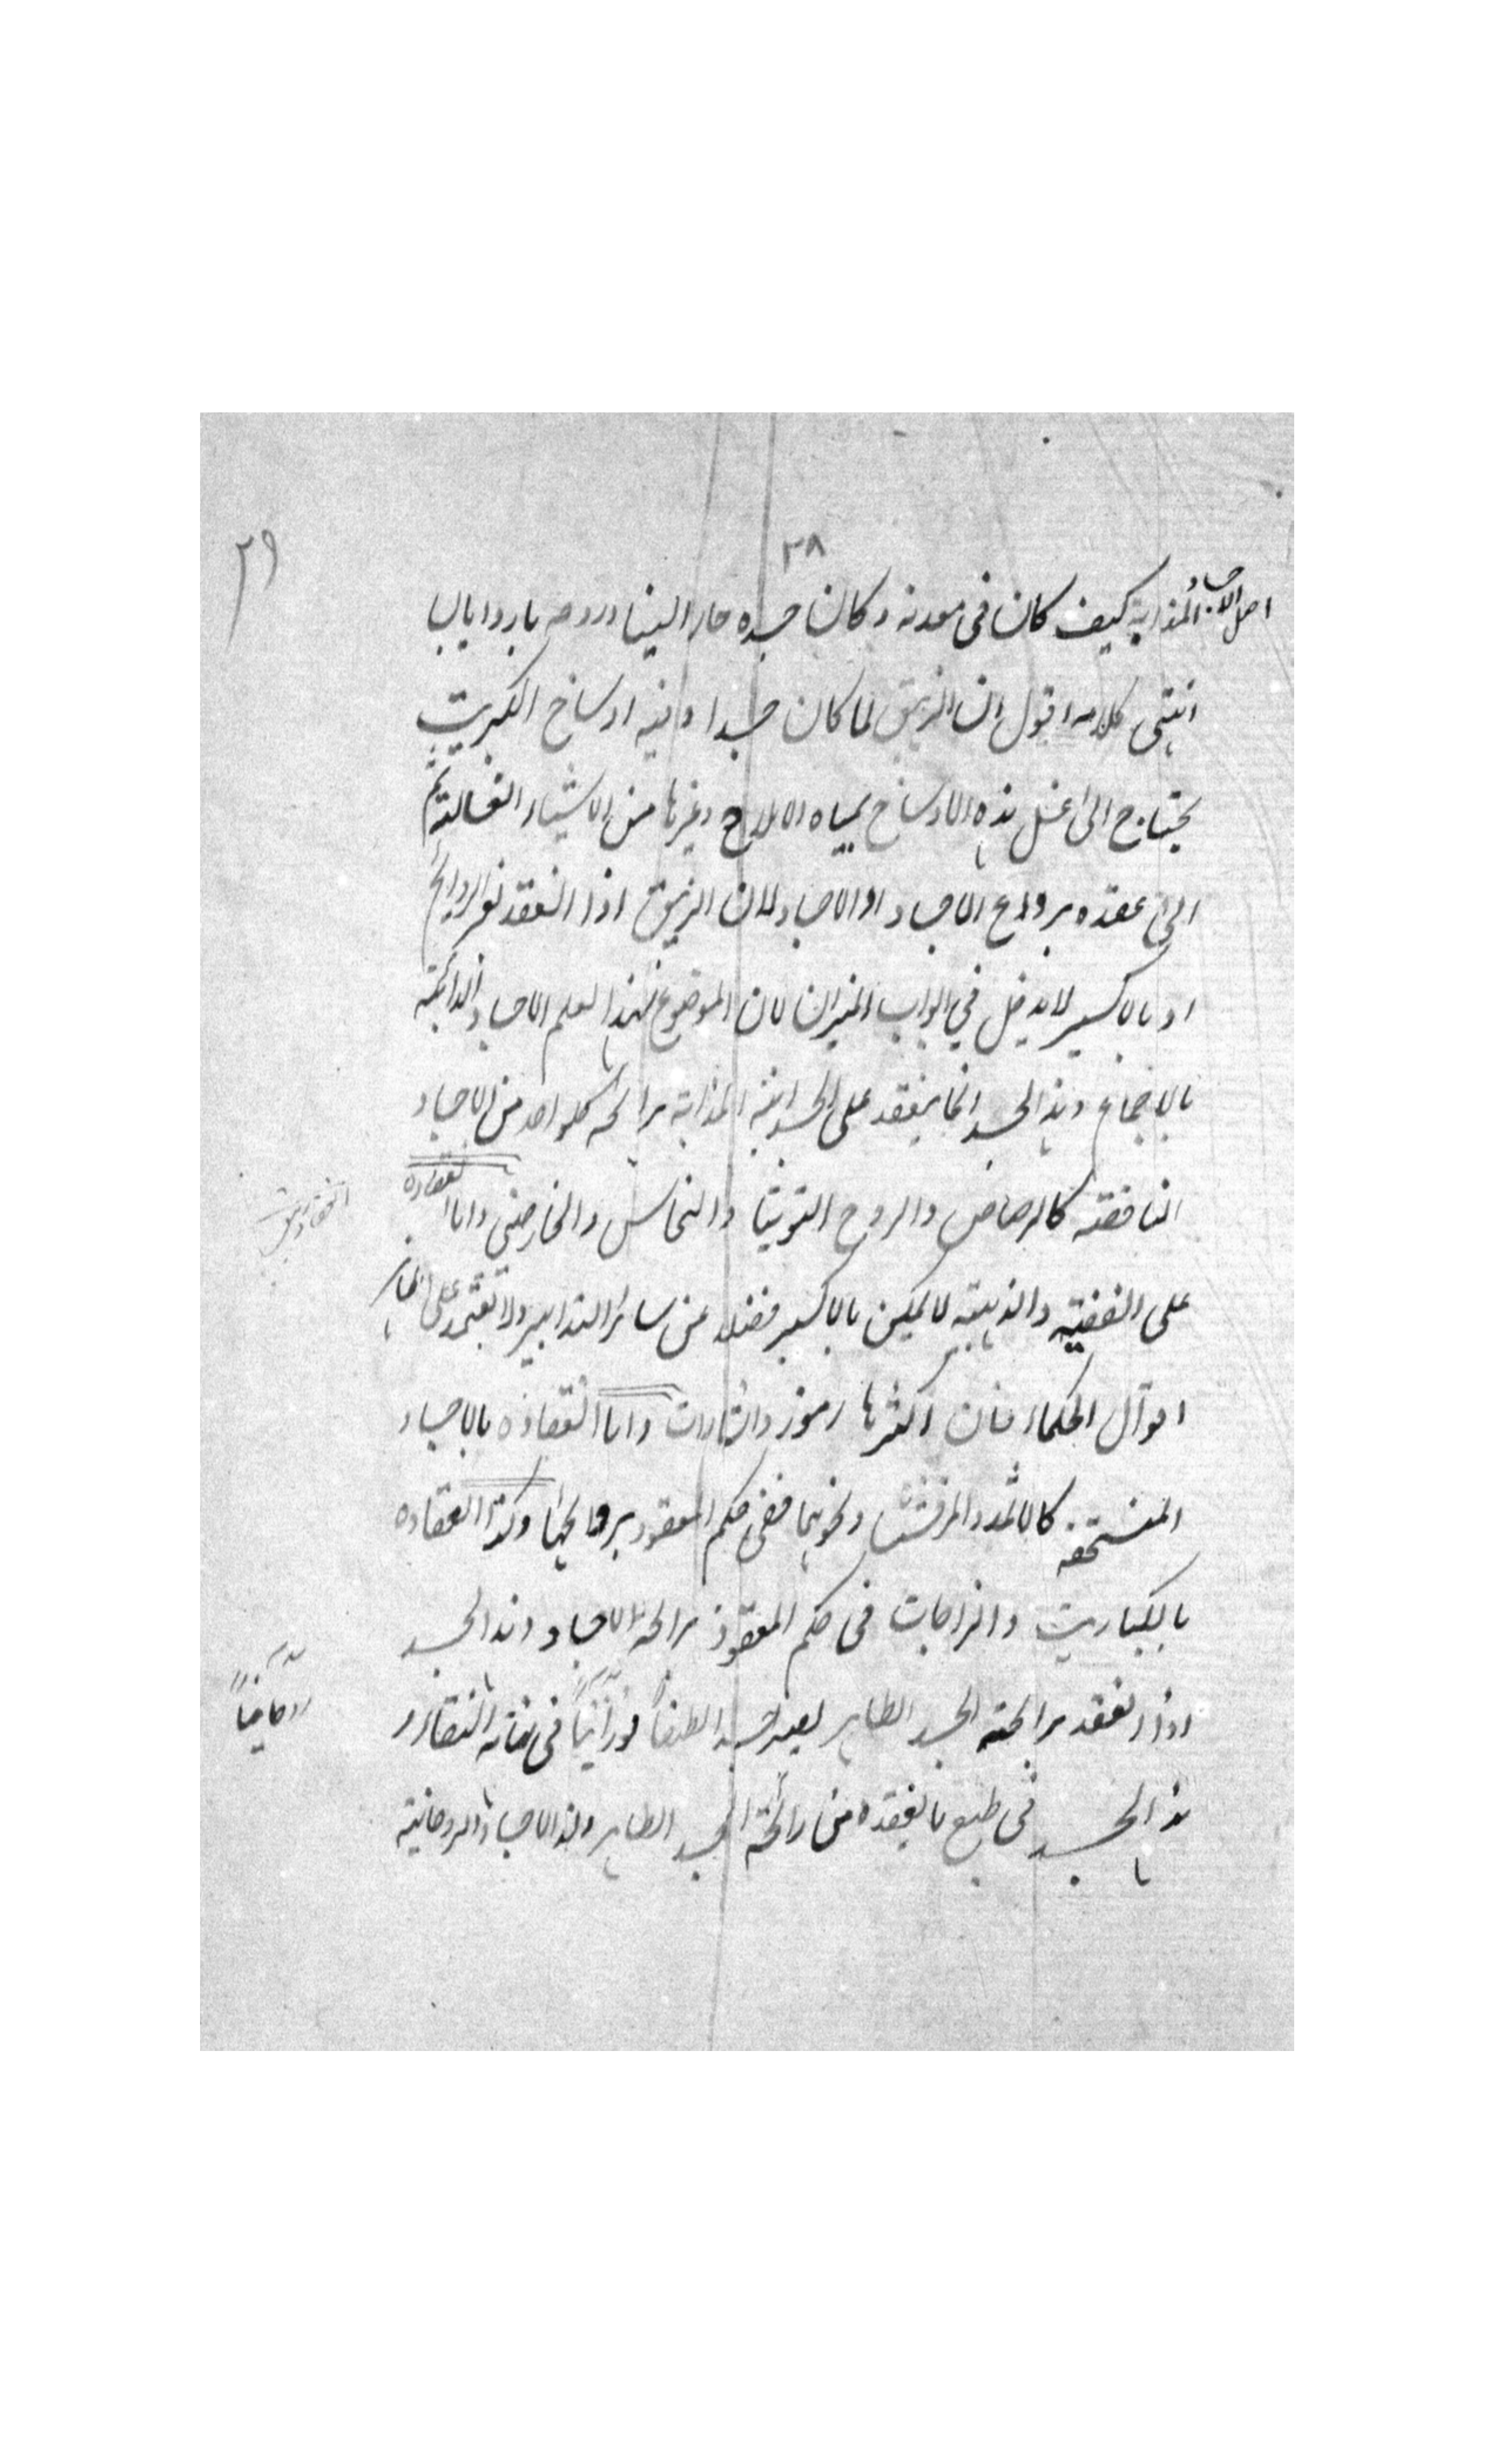 ٢٨
٢٩
اصل الاجساد المذابة كيف كان فى معدنه وكان جسده حارا لينا وروحه باردا يابسا
انتهى كلامه اقول ان الزيبق لما كان جسدا وفيه اوساخ الكبريت
يحتاج الى غسل هذه الاوساخ بمياه الاملاح وغيرها من الاشياء الغسالة ثم
الى عقده بروايح الاجساد او الاجساد لان الزيبق اذا انعقد بغير الروايح
او بالاكسير لا يدخل في ابواب الميزان لان الموضوع لهذا العلم الاجساد الذائبة
بالاجماع وهذا الجسد انما ينعقد على الجسدانية المذابة برائحة كلواحد من الاجساد
الناقصة كالرصاص والروح التوتيا والنحاس والخارصنى واما انعقاده
على الفضية والذهبية لا يمكن بالاكسير فضلا عن سائر التدابير ولا تعتمد على ظاهر
اقوال الحكماء فان اكثرها رموز واشارات واما انعقاده بالاجساد
المنسحقة كالاثمد والمرقشيثا ونحوهما ففى حكم المعقود بروايحها وكذا انعقاده
بالكباريت والزاجات فى حكم المعقود برائحة الاجساد وهذا الجسد
اذا انعقد برائحة الجسد الطاهر يصير جسدا لطيفاً نورانياً فى غاية النقاء و
هذا الجسد فى طبع ما يعقده من رائحة الجسد الطاهر وهذا الاجساد الروحانية
روحانياً